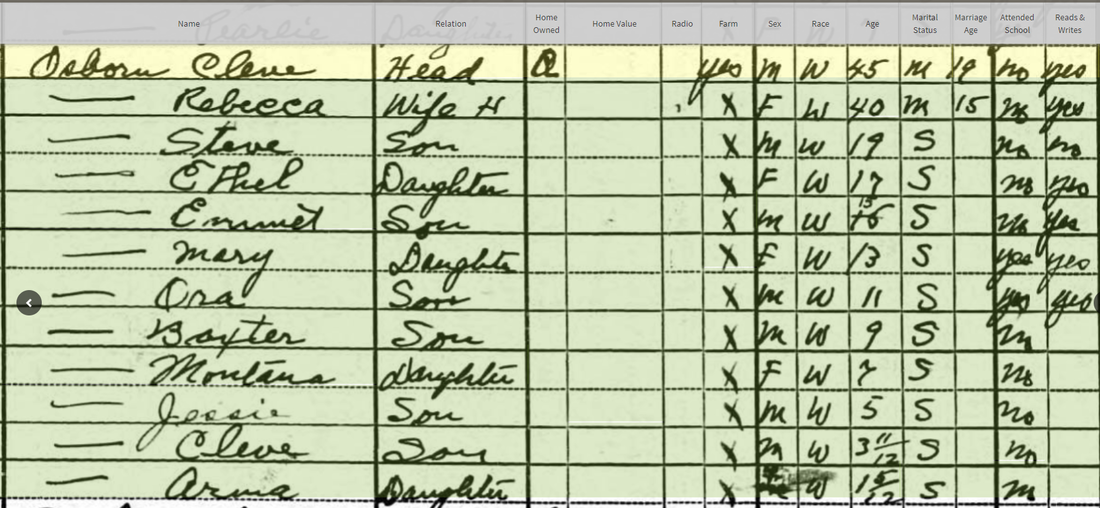 Name Relation Home Owned Home Value Radio Farm Sex Race Age Marital Status Marriage Age Attended School Reads & Writes
Osborn Cleve Head yes M W 45 M 19 no yes
— Rebecca Wife H X F W 40 M 15 no yes
— Steve Son X M W 19 S no no
— Ethel Daughter X F W 17 S no yes
— Emmet Son X M W 15 S no yes
— Mary Daughter X F W 13 S yes yes
— Ora Son X M W 11 S yes yes
— Baxter Son X M W 9 S no
— Montana Daughter X F W 7 S no
— Jessie Son X M W 5 S no
— Cleve Son X M W 3 11/12 S no
— Arma Daughter X W 1 5/12 S no